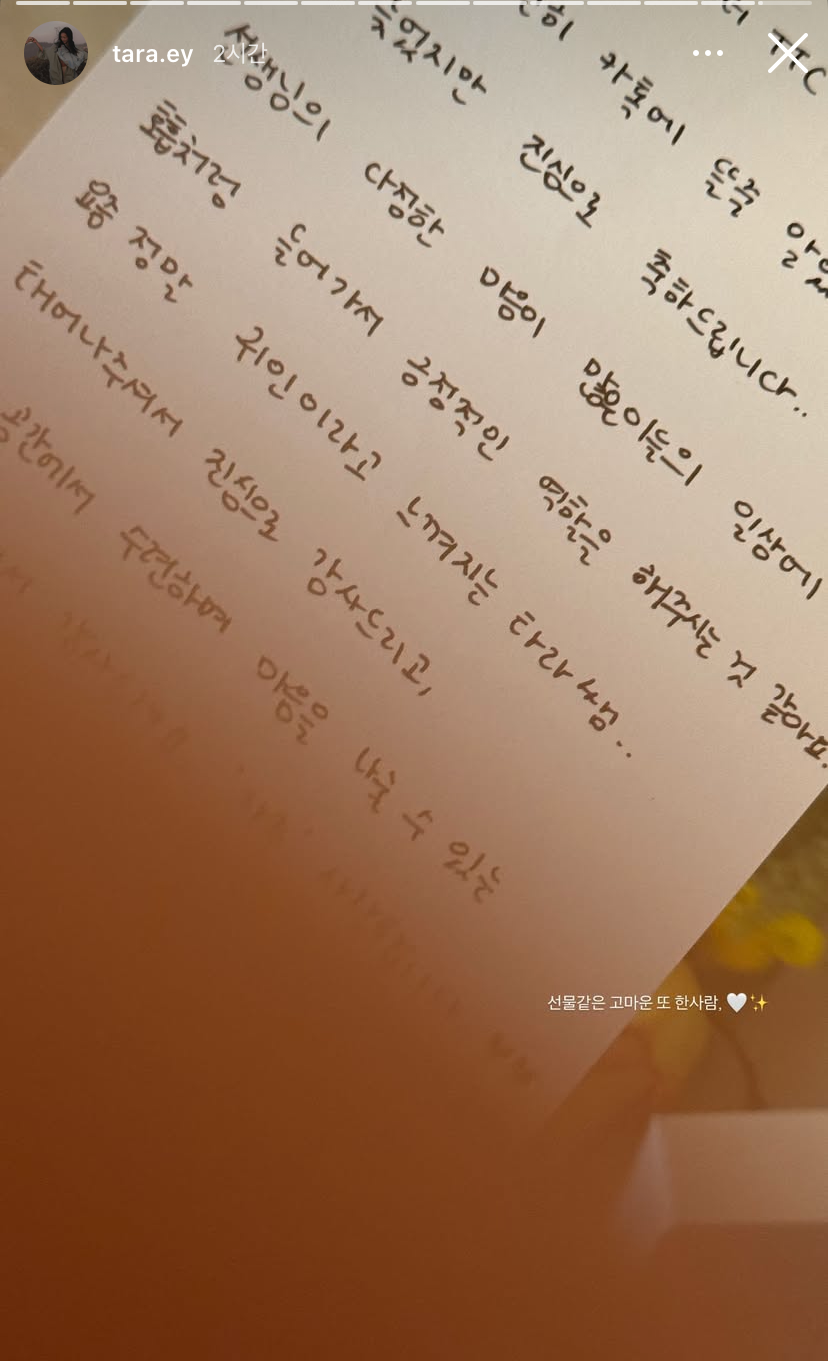 tara.ey 2시간
카톡에 뜬즉
늦었지만 진심으로 축하드립니다..
선생님의 다정한 마음이 많은이들의 일상에
흐름처럼 들어가서 긍정적인 역할을 해주시는 것 같아요.
요즘 정말 귀인이라고 느껴지는 타라쌤..
태어나주셔서 진심으로 감사드리고,
공간에서 수련하며 마음을 나눌 수 있는
선물같은 고마운 또 한사람, 🤍✨